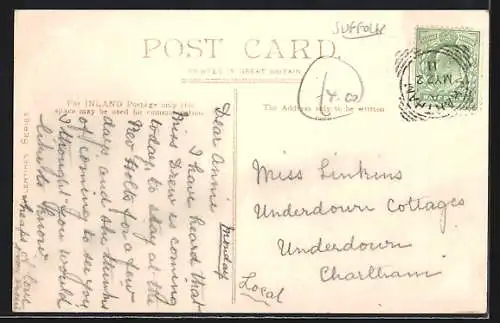 SUFFOLK
POST CARD.
PRINTED IN GREAT BRITAIN.
4.00
For INLAND Postage only this
space may be used for communication.
The Address only to be written
MY 22
11
Monday
Dear Annie
I have heard that
Miss Drew is coming
today, to stay at the
Rev Holts for a few
days and she thinks
of coming to see you
I thought you would
like to know.
heaps of love
from
Miss Linkins
Underdown Cottages
Underdown
Chartham
Local